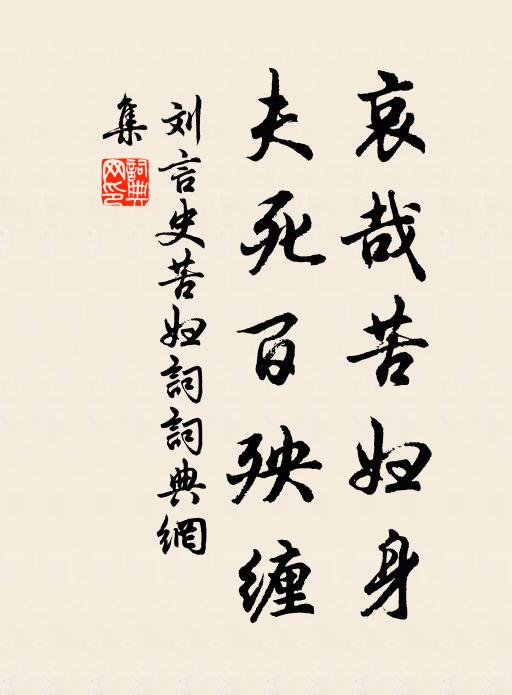 哀哉苦妇身
夫死百殃缠
刘言史苦妇詞詞典網
集
詞典
网印